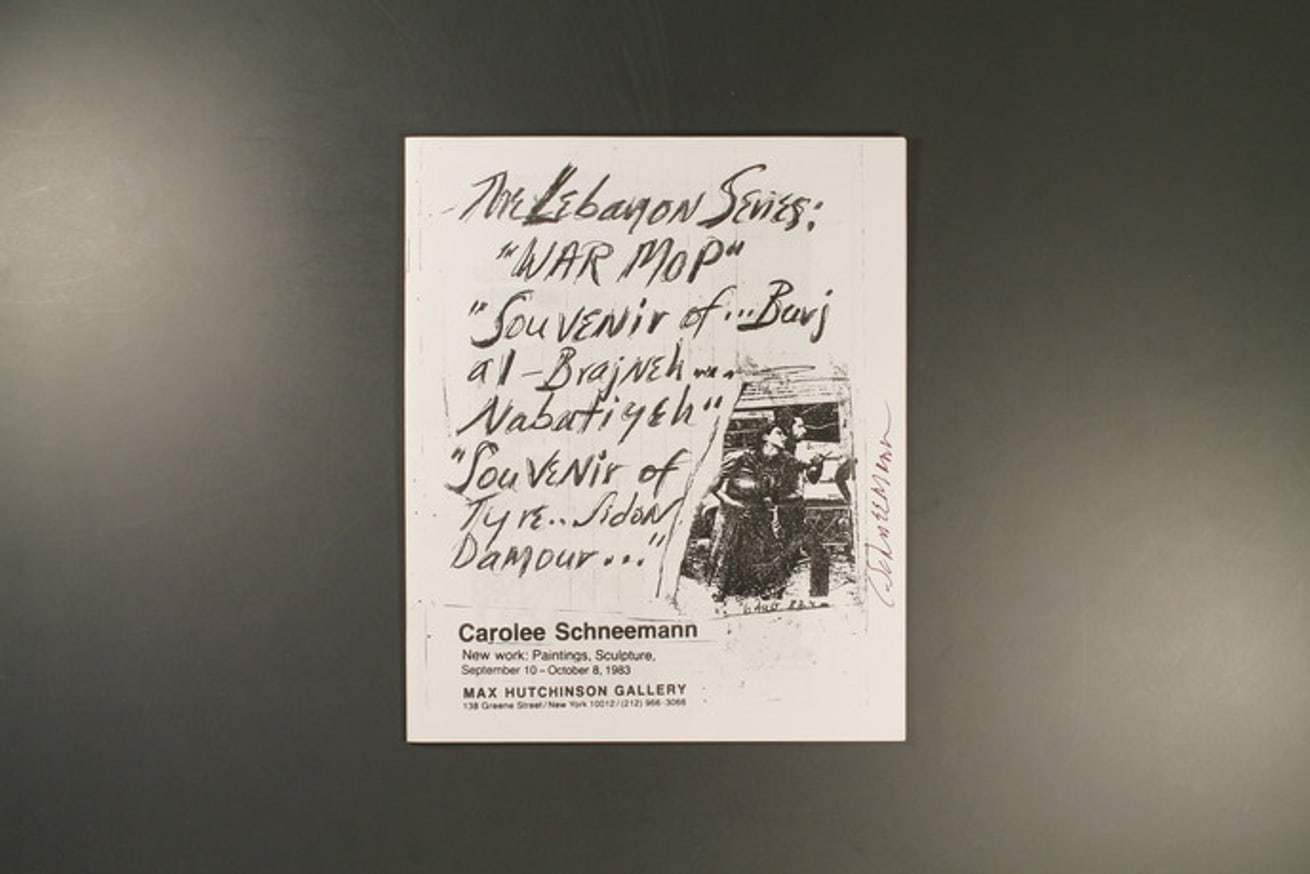 The Lebanon Series:
"WAR MOP"
"Souvenir of...Burj
al-Brajneh...
Nabatiyeh"
"Souvenir of
Tyre..Sidon
Damour..."
6 AUG 82
Carolee Schneemann
New work: Paintings, Sculpture,
September 10 – October 8, 1983
MAX HUTCHINSON GALLERY
138 Greene Street/New York 10012/(212) 966-3066
C Schneemann